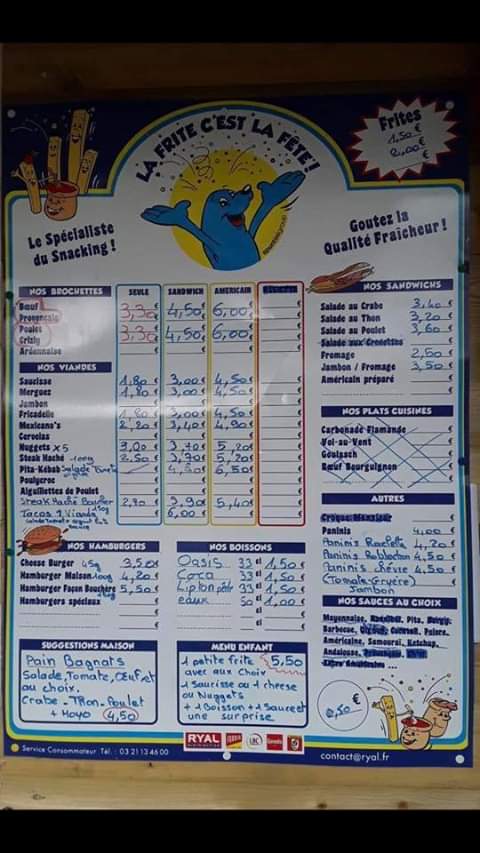 LA FRITE C'EST LA FÊTE !
Frites
1,50 €
2,00 €
€
Le Spécialiste
du Snacking !
Goutez la
Qualité Fraîcheur !
NOS BROCHETTES SEULE SANDWICH AMERICAIN
Bœuf 3,30 € 4,50 € 6,00 €
Provençale
Poulet 3,30 € 4,50 € 6,00 €
Grizly
Ardennaise
NOS VIANDES
Saucisse 1,80 € 3,00 € 4,50 €
Merguez 1,80 € 3,00 € 4,50 €
Jambon
Fricadelle 1,80 € 3,00 € 4,50 €
Mexicano's 2,20 € 3,40 € 4,90 €
Cervelas
Nuggets x5 3,00 € 3,70 € 5,20 €
Steak Haché 100g 2,50 € 3,70 € 5,20 €
Pita-Kébab Salade Tomate 4,50 € 6,50 €
Poulycroc
Aiguillettes de Poulet
Steak Haché Boucher 2,80 3,90 € 5,40 €
Tacos 1 Viande 6,00 €
NOS SANDWICHS
Salade au Crabe 3,40 €
Salade au Thon 3,20 €
Salade au Poulet 3,60 €
Salade aux Crevettes €
Fromage 2,50 €
Jambon / Fromage 3,50 €
Américain préparé €
NOS PLATS CUISINES
Carbonade Flamande €
Vol-au-Vent €
Goulasch €
Bœuf Bourguignon €
AUTRES
Croque Monsieur €
Paninis 4,00 €
Paninis Raclette 4,20 €
Paninis Reblochon 4,50 €
Paninis chèvre 4,50 €
(Tomate-Gruyère)
Jambon
NOS HAMBURGERS
Cheese Burger 45g 3,50 €
Hamburger Maison 100g 4,20 €
Hamburger Façon Bouchère 5,50 €
Hamburgers spéciaux €
NOS BOISSONS
Oasis 33 cl 1,50 €
Coca 33 cl 1,50 €
Lipton pêche 33 cl 1,50 €
eaux 50 cl 1,00 €
NOS SAUCES AU CHOIX
Mayonnaise, Pita,
Barbecue, Cocktail, Poivre,
Américaine, Samouraï, Ketchup,
Andalouse,
0,50 €
SUGGESTIONS MAISON
Pain Bagnats
Salade, Tomate, Œuf, et
au choix.
Crabe - Thon - Poulet
+ Mayo 4,50
MENU ENFANT
1 petite frite 5,50
avec aux choix
1 saucisse ou 1 cheese
ou Nuggets
+ 1 Boisson + 1 sauce et
une surprise
RYAL
Service Consommateur Tél. : 03 21 13 46 00
contact@ryal.fr